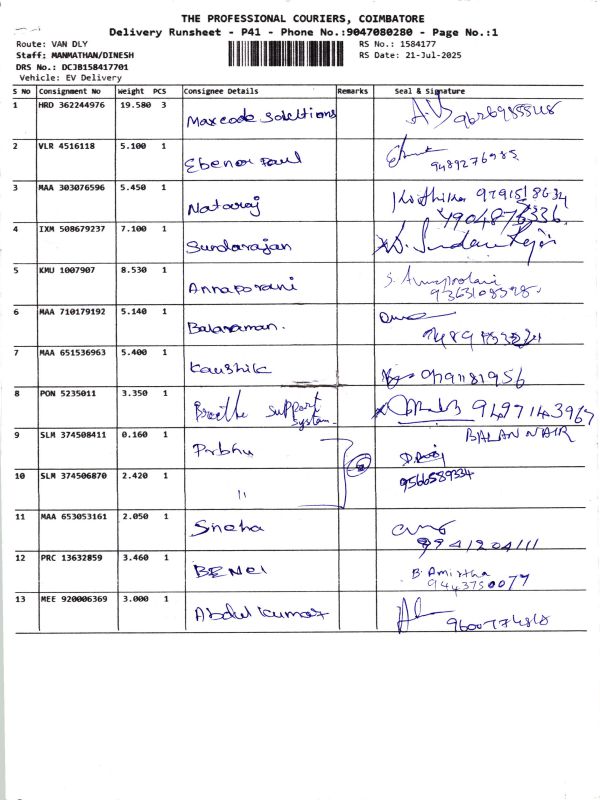 THE PROFESSIONAL COURIERS, COIMBATORE
Delivery Runsheet - P41 - Phone No.:9047080280 - Page No.:1
Route: VAN DLY RS No.: 1584177
Staff: MANMATHAN/DINESH RS Date: 21-Jul-2025
DRS No.: DCJB158417701
Vehicle: EV Delivery
S No Consignment No Weight PCS Consignee Details Remarks Seal & Signature
1 HRD 362244976 19.580 3 Maxcode Solutions
2 VLR 4516118 5.100 1 Ebenor Paul 9489276985
3 MAA 303076596 5.450 1 Nataraj
4 IXM 508679237 7.100 1 Sundarajan
5 KMU 1007907 8.530 1 Annaporani
6 MAA 710179192 5.140 1 Balaraman.
7 MAA 651536963 5.400 1 Kaushik
8 PON 5235011 3.350 1 Breathe support system 9497143967
BALAN NAIR
9 SLM 374508411 0.160 1 Prbhu
10 SLM 374506870 2.420 1 " 9566589334
11 MAA 653053161 2.050 1 Sneha 9941204111
12 PRC 13632859 3.460 1 B. Amirtha
9443750077
13 MEE 920006369 3.000 1 Abdul Kumar